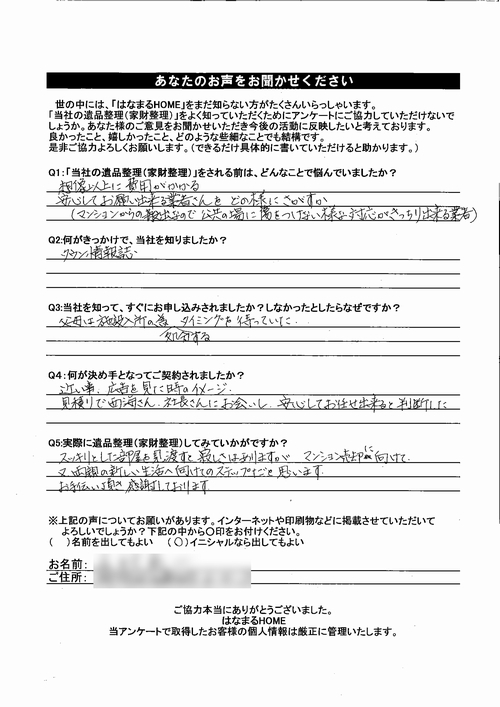 あなたのお声をお聞かせください
世の中には、「はなまるHOME」をまだ知らない方がたくさんいらっしゃいます。
「当社の遺品整理(家財整理)」をよく知っていただくためにアンケートにご協力していただけないで
しょうか。あなた様のご意見をお聞かせいただき今後の活動に反映したいと考えております。
良かったこと、嬉しかったこと、どのような些細なことでも結構です。
是非ご協力よろしくお願いします。(できるだけ具体的に書いていただけると助かります。)
Q1:「当社の遺品整理(家財整理)」をされる前は、どんなことで悩んでいましたか?
想像以上に費用がかかる
安心してお願い出来る業者さんをどの様にさがすか
(マンションからの搬出なので公共の場に傷をつけない様な対応がきっちり出来る業者)
Q2:何がきっかけで、当社を知りましたか?
タウン情報誌
Q3:当社を知って、すぐにお申し込みされましたか?しなかったとしたらなぜですか?
父母は施設入所の為 タイミングを待っていた。
処分する
Q4:何が決め手となってご契約されましたか?
近い事、広告を見た時のイメージ。
見積りで西海さん、社長さんにお会いし、安心してお任せ出来ると判断した
Q5:実際に遺品整理(家財整理)してみていかがですか?
スッキリとした部屋を見渡すと寂しさはありますが マンション売却に向けて、
又、両親の新しい生活へ向けてのステップだと思います
お手伝い頂き感謝しております
※上記の声についてお願いがあります。インターネットや印刷物などに掲載させていただいて
よろしいでしょうか?下記の中から〇印をお付けください。
( )名前を出してもよい (〇)イニシャルなら出してもよい
お名前:
ご住所:
ご協力本当にありがとうございました。
はなまるHOME
当アンケートで取得したお客様の個人情報は厳正に管理いたします。